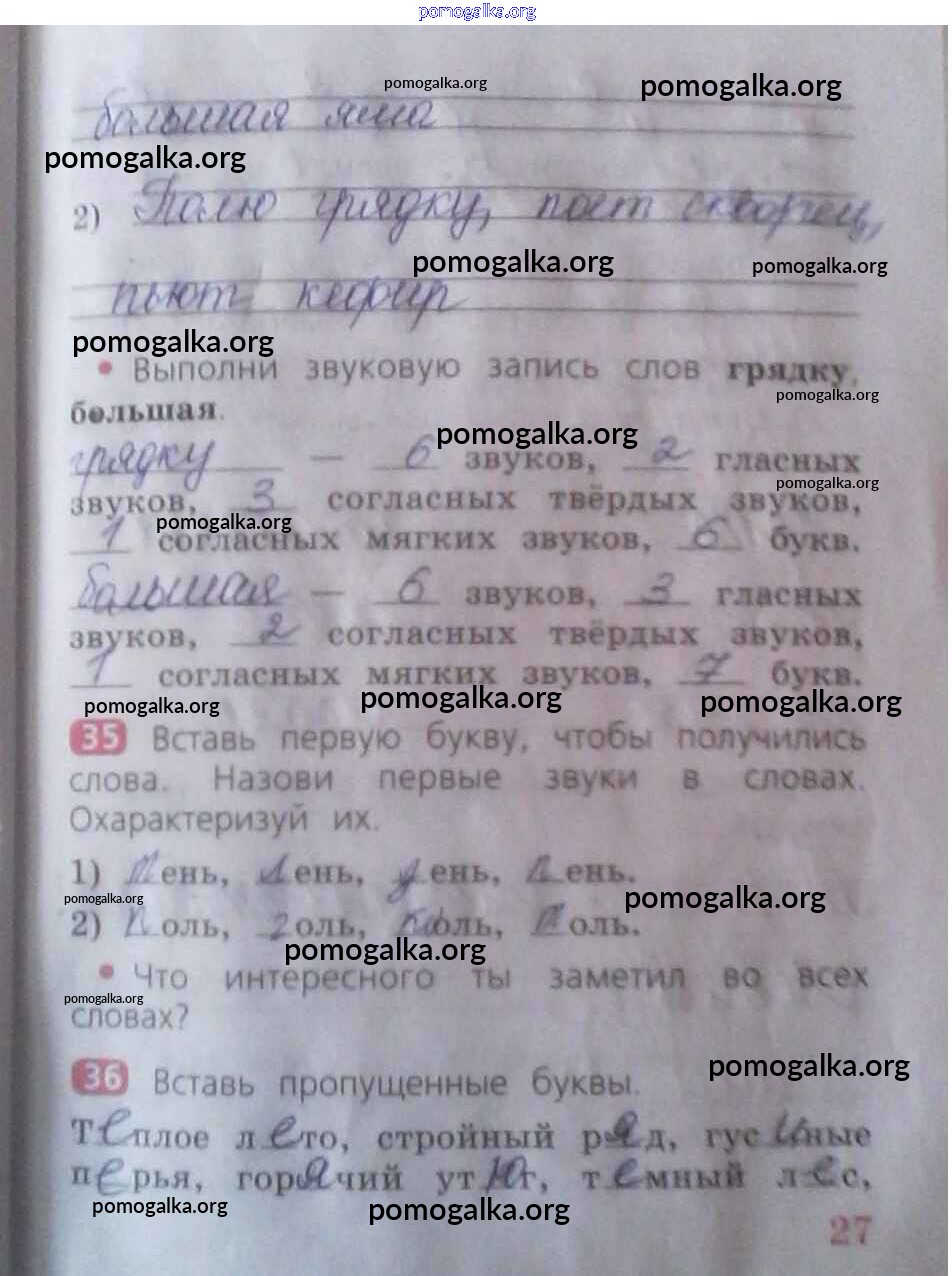 pomogalka.org
pomogalka.org pomogalka.org
большая яма
pomogalka.org
2) Полю грядку, поёт скворец,
pomogalka.org pomogalka.org
пьют кефир
pomogalka.org
• Выполни звуковую запись слов грядку,
pomogalka.org
большая.
pomogalka.org
грядку — 6 звуков, 2 гласных
pomogalka.org
звуков, 3 согласных твёрдых звуков,
pomogalka.org
1 согласных мягких звуков, 6 букв.
большая — 6 звуков, 3 гласных
звуков, 2 согласных твёрдых звуков,
1 согласных мягких звуков, 7 букв.
pomogalka.org pomogalka.org pomogalka.org
35 Вставь первую букву, чтобы получились
слова. Назови первые звуки в словах.
Охарактеризуй их.
1) Пень, день, ень, лень.
pomogalka.org pomogalka.org
2) оль, оль, оль, оль.
pomogalka.org
• Что интересного ты заметил во всех
pomogalka.org
словах?
pomogalka.org
36 Вставь пропущенные буквы.
Теплое лето, стройный ряд, гусиные
перья, горячий утюг, темный лес,
pomogalka.org pomogalka.org
27